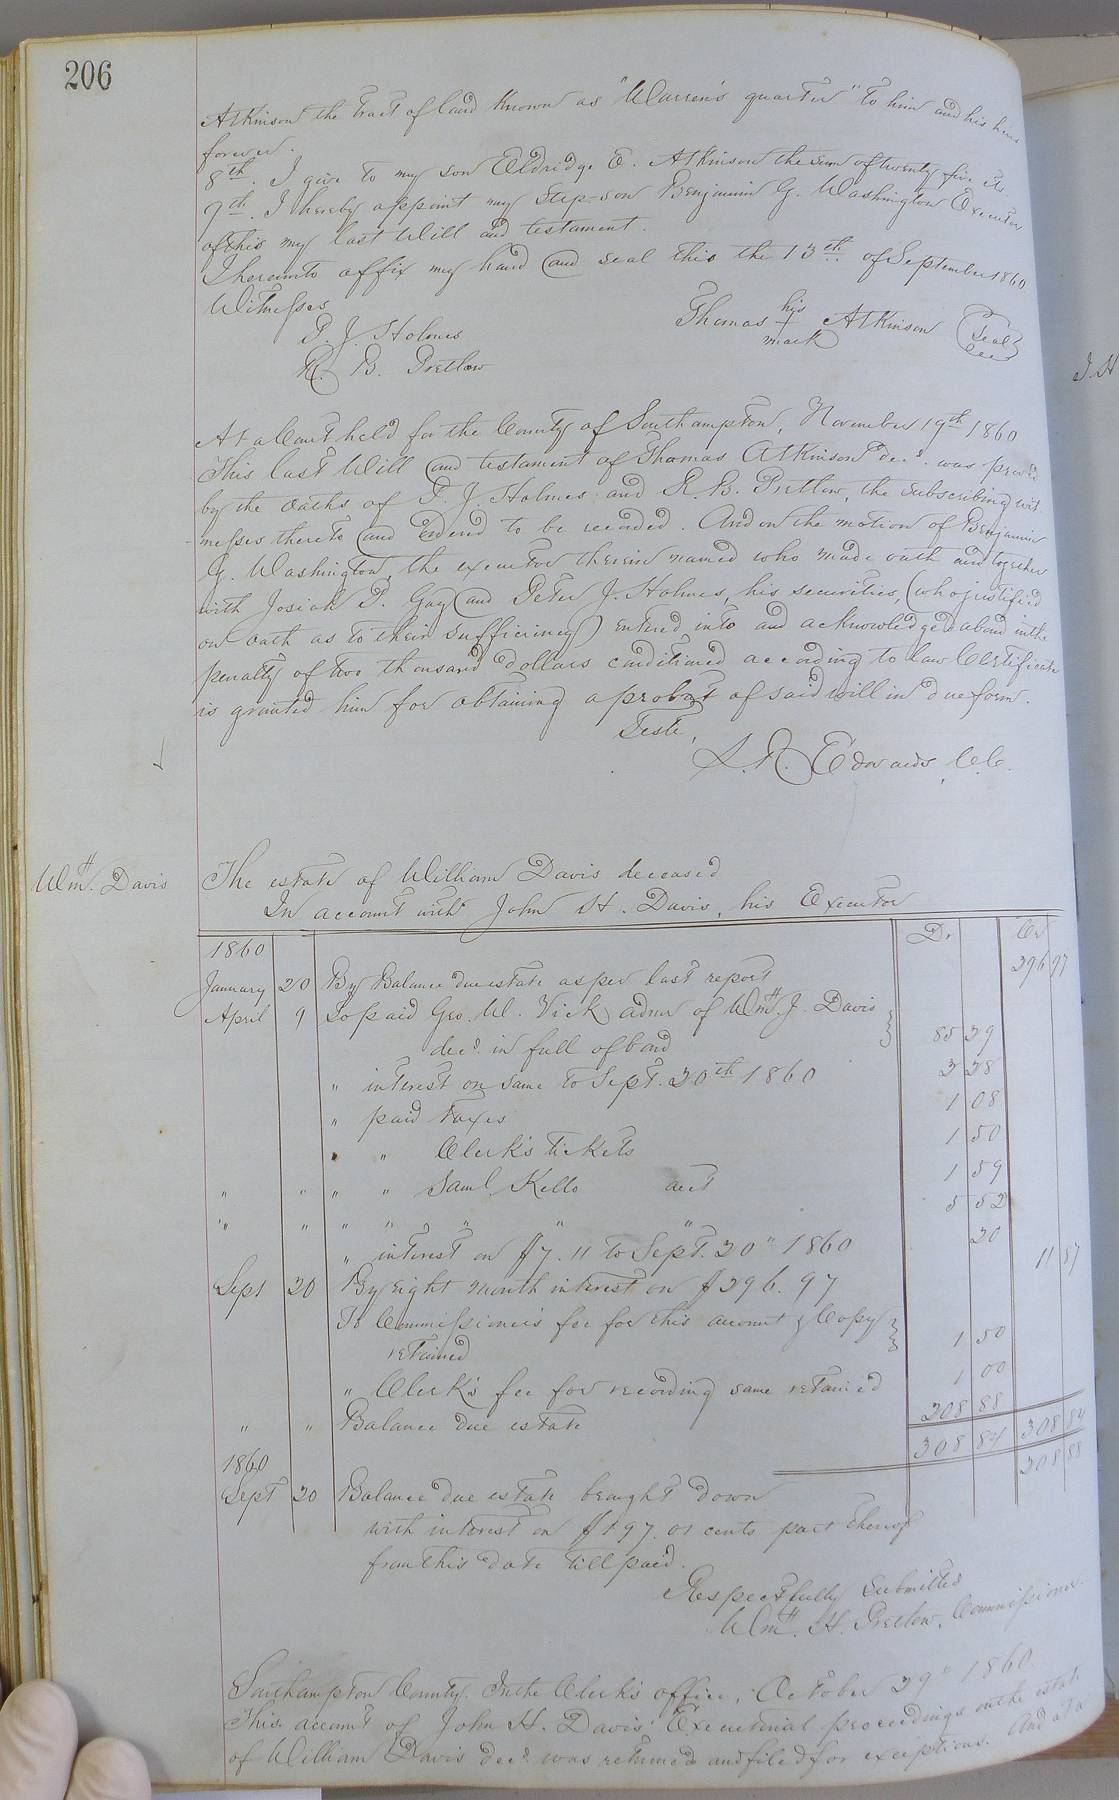 206
Atkinson the Tract of land known as "Warren's quarter" to him and his heirs
forever.
8th. I give to my son Eldridge E. Atkinson the sum of twenty five cts.
9th. I hereby appoint my Step-son Benjamin G. Washington Executor
of this my last Will and testament.
I hereunto affix my hand and seal this the 13th of September 1860
Witnesses
his
P. J. Holmes
Thomas + Atkinson (Seal)
mark
R. B. Pretlow
At a Court held for the County of Southampton, November 19th 1860
This last Will and testament of Thomas Atkinson decd. was proved
by the oaths of P. J. Holmes and R. B. Pretlow, the subscribing wit-
nesses thereto and ordered to be recorded. And on the motion of Benjamin
G. Washington, the executor therein named who made oath and together
with Josiah P. Gay and Peter J. Holmes, his securities, (who justified
on oath as to their sufficiency) entered into and acknowledged a bond in the
penalty of two thousand dollars conditioned according to law Certificate
is granted him for obtaining a probat of said will in due form.
Teste,
L. R. Edwards, C.C.
Wm. H. Davis
The estate of William Davis deceased
In account with John H. Davis, his Executor
Dr Cr
1860
January 20 By Balance due estate as per last report 296 97
April 9 To paid Geo. W. Vick admr of Wm. J. Davis
decd. in full of bond 85 29
" interest on same to Sept. 20th 1860 2 28
" paid taxes 1 08
" " Clerk's tickets 1 50
" " " " Saml. Kello acct 1 59
" " " " " " " 5 52
" interest on $7.11 to Sept. 20" 1860 20
Sept 20 By eight month interest on $296.97 11 87
To Commissioner's fee for this account & Copy
retained 1 50
" Clerk's fee for recording same retained 1 00
" " Balance due estate 208 88
308 84 308 84
1860
Sept 20 Balance due estate brought down 208 88
with interest on $197.01 cents part thereof
from this date till paid.
Respectfully Submitted
Wm. H. Pretlow, Commissioner.
Southampton County. In the Clerk's office, October 29" 1860.
This account of John H. Davis' Executorial proceedings on the estate
of William Davis decd. was returned and filed for exceptions. And at a